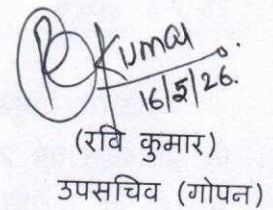 R Kumar
16/5/26.
(रवि कुमार)
उपसचिव (गोपन)